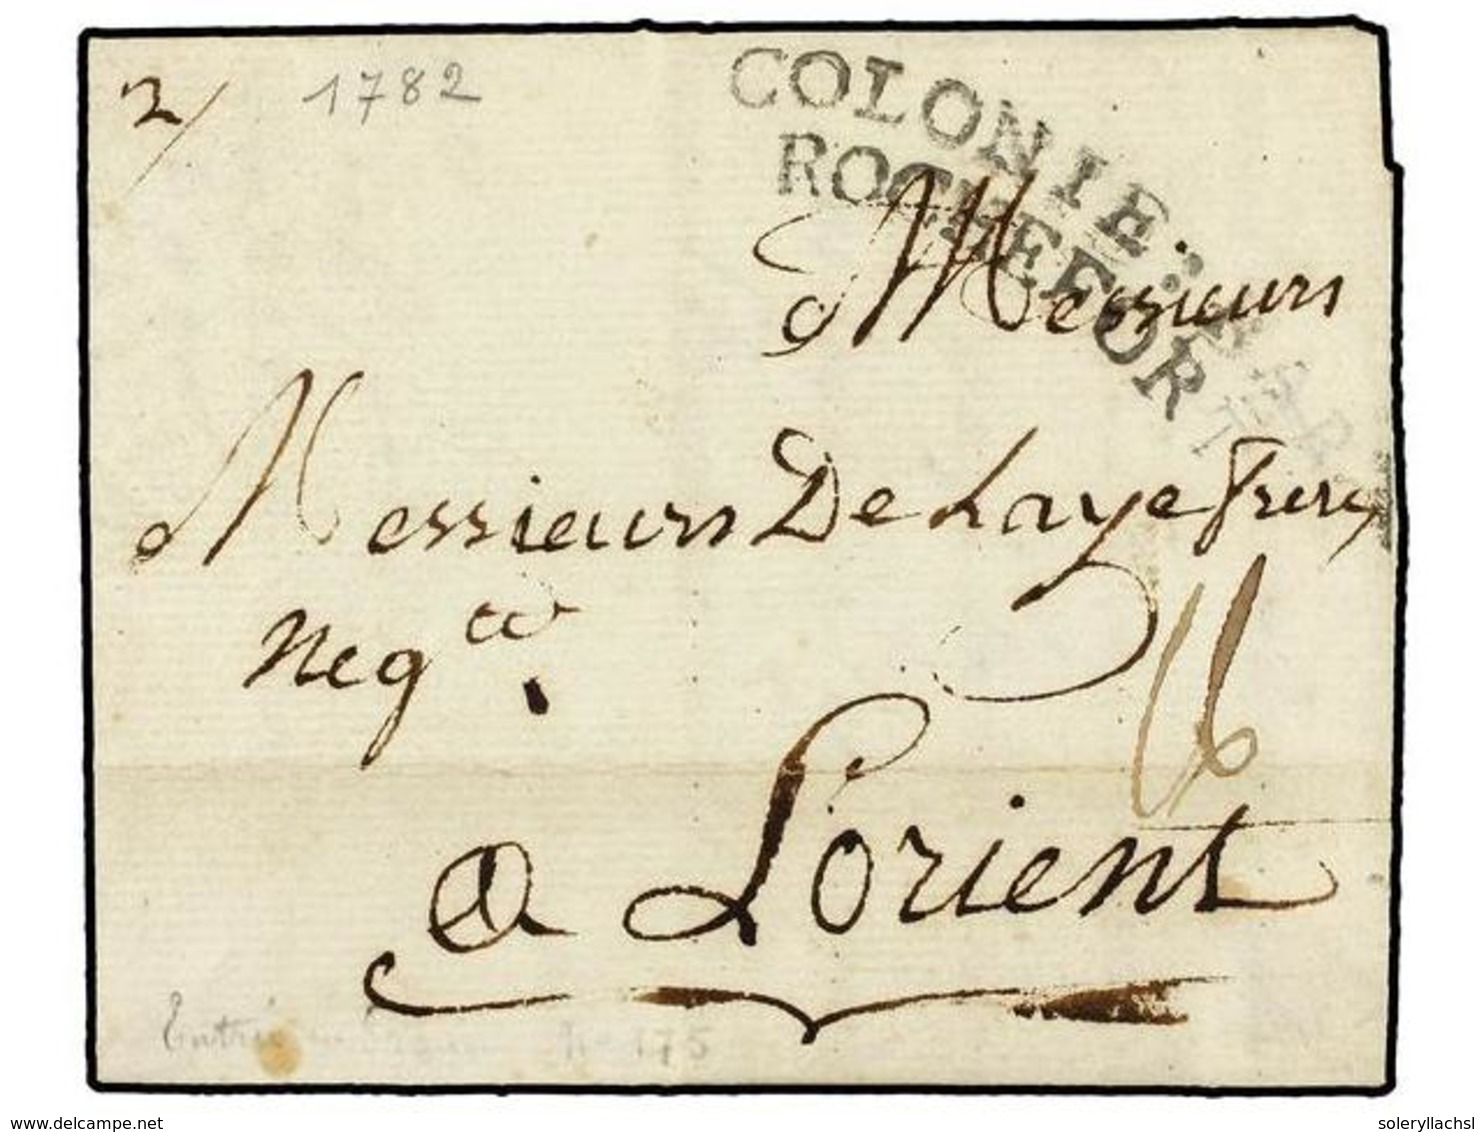 2/ 1782
COLONIE : PAR
ROCHEFORT
Messieurs
Messieurs De Laye freres
Negts
a Lorient
16
Entrée N° 175
delcampe.net
soleryllachsl